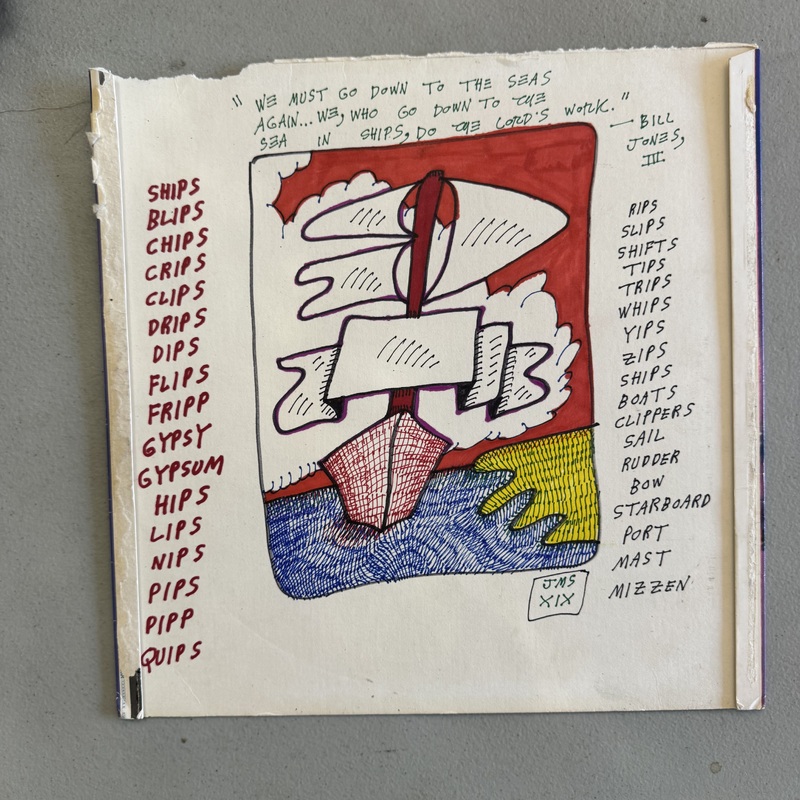 " WE MUST GO DOWN TO THE SEAS
AGAIN... WE, WHO GO DOWN TO THE
SEA IN SHIPS, DO THE LORD'S WORK. "
— BILL
JONES,
III
SHIPS
BLIPS
CHIPS
CRIPS
CLIPS
DRIPS
DIPS
FLIPS
FRIPP
GYPSY
GYPSUM
HIPS
LIPS
NIPS
PIPS
PIPP
QUIPS
RIPS
SLIPS
SHIFTS
TIPS
TRIPS
WHIPS
YIPS
ZIPS
SHIPS
BOATS
CLIPPERS
SAIL
RUDDER
BOW
STARBOARD
PORT
MAST
MIZZEN
JMS
XIX